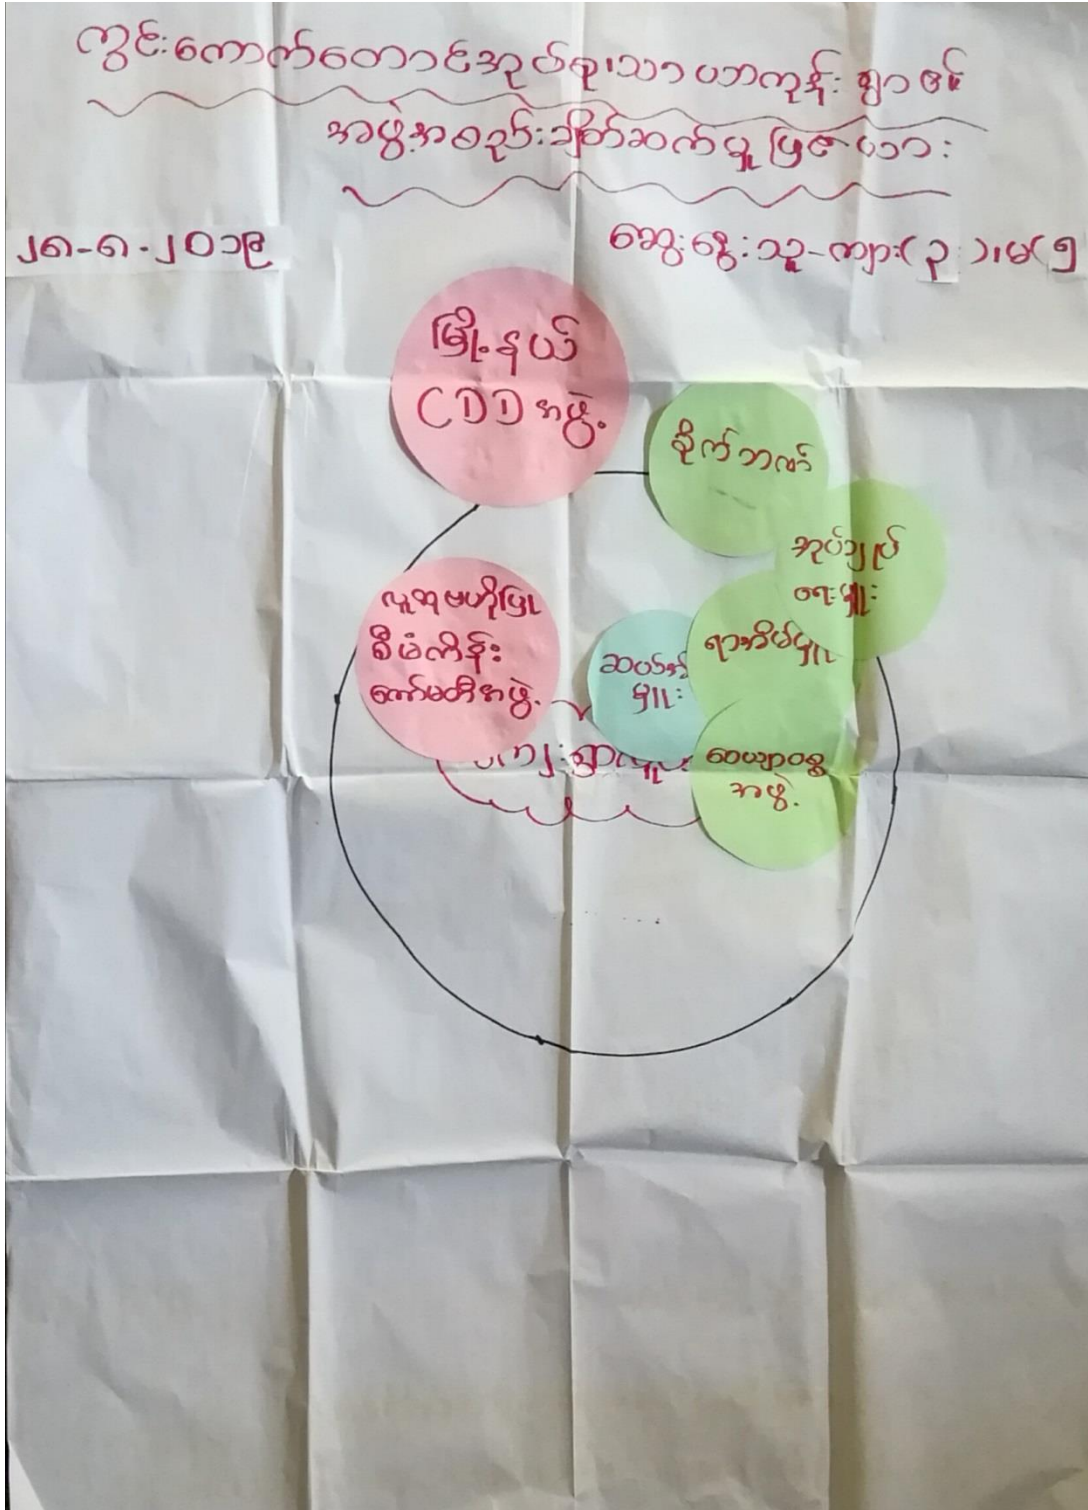 ကွင်းကောက်တောင်အုပ်စု၊သာပဘကုန်းရွာ၏
အဖွဲ့အစည်းချိတ်ဆက်မှုပြဇယား
၂၈-၈-၂၀၁၉
ဆွေးနွေးသူ-ကျား(၃)၊မ(၅
မြို့နယ်
CDD အဖွဲ့
စိုက်ဘဏ်
အုပ်ချုပ်
ရေးမှူး
လူထုဗဟိုပြု
စီမံကိန်း
ကော်မတီအဖွဲ့
ဆယ်အိမ်
မှူး
ရာအိမ်မှူး
ဝေယျာဝစ္စ
အဖွဲ့